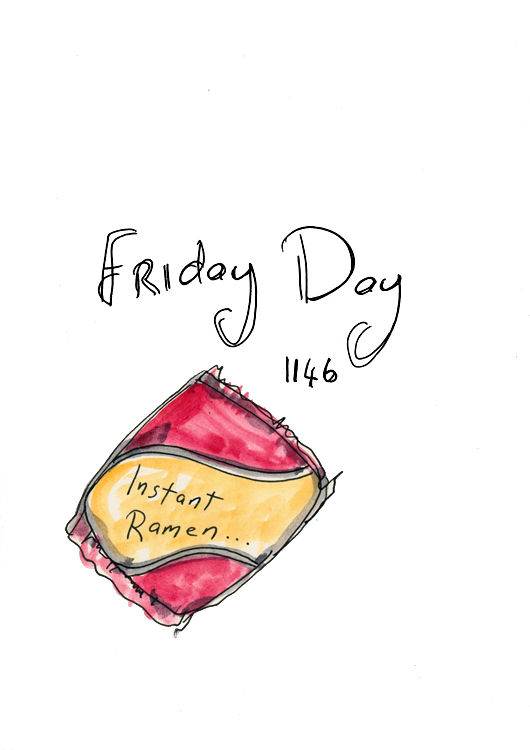 Friday Day
1146
Instant
Ramen...